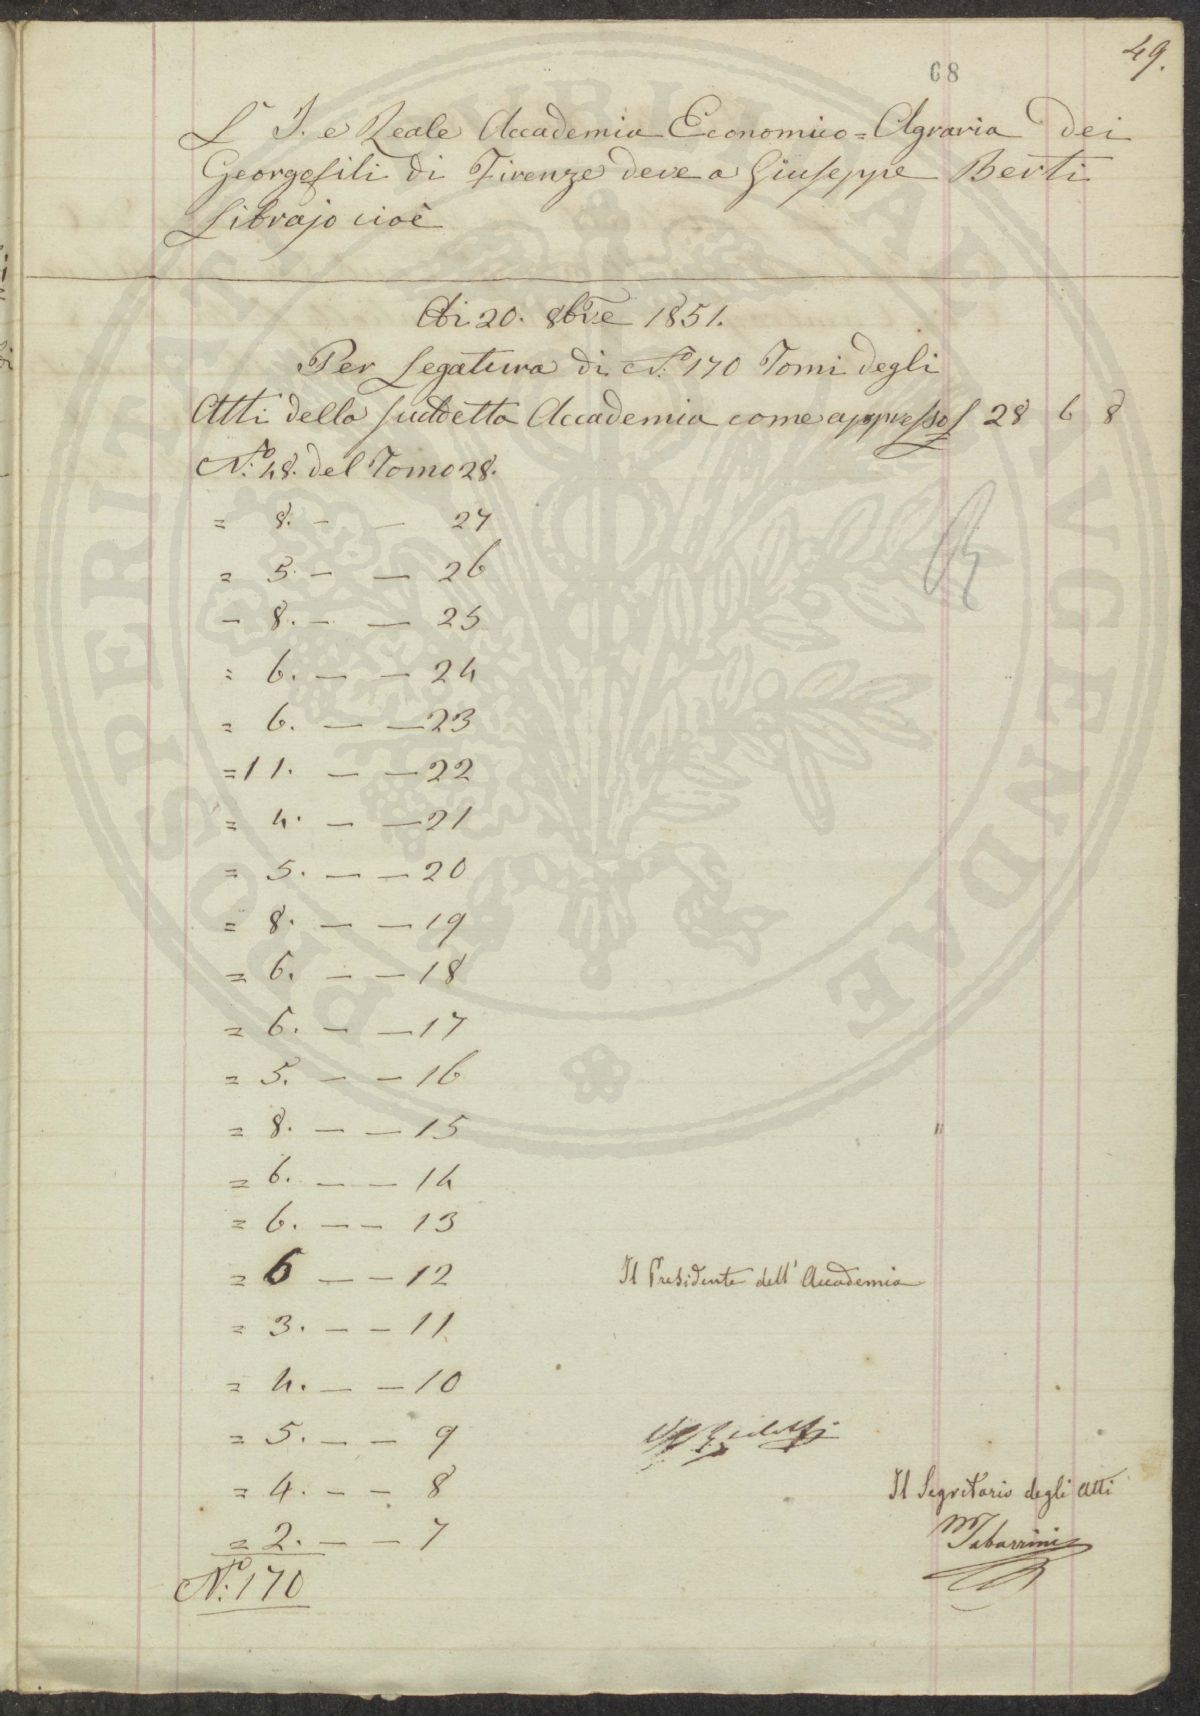 49.
68
L' I. e Reale Accademia Economico=Agraria dei
Georgofili di Firenze deve a Giuseppe Berti
Librajo cioè
Adi 20. 8bre 1851.
Per Legatura di N.º 170 Tomi degli
Atti della suddetta Accademia come appresso £ 28 6 8
N.º 48. del Tomo 28.
= 8. — — 27
= 5. — — 26
= 8. — — 25
= 6. — — 24
= 6. — — 23
= 11. — — 22
= 4. — — 21
= 5. — — 20
= 8. — — 19
= 6. — — 18
= 6. — — 17
= 5. — — 16
= 8. — — 15
= 6. — — 14
= 6. — — 13
= 6 — — 12
Il Presidente dell' Accademia
= 3. — — 11
= 4. — — 10
= 5. — — 9
Ridolfi
= 4. — — 8
Il Segretario degli Atti
= 2. — — 7
M Tabarrini
N.º 170
PROSPERITATI PUBLICAE AUGENDAE